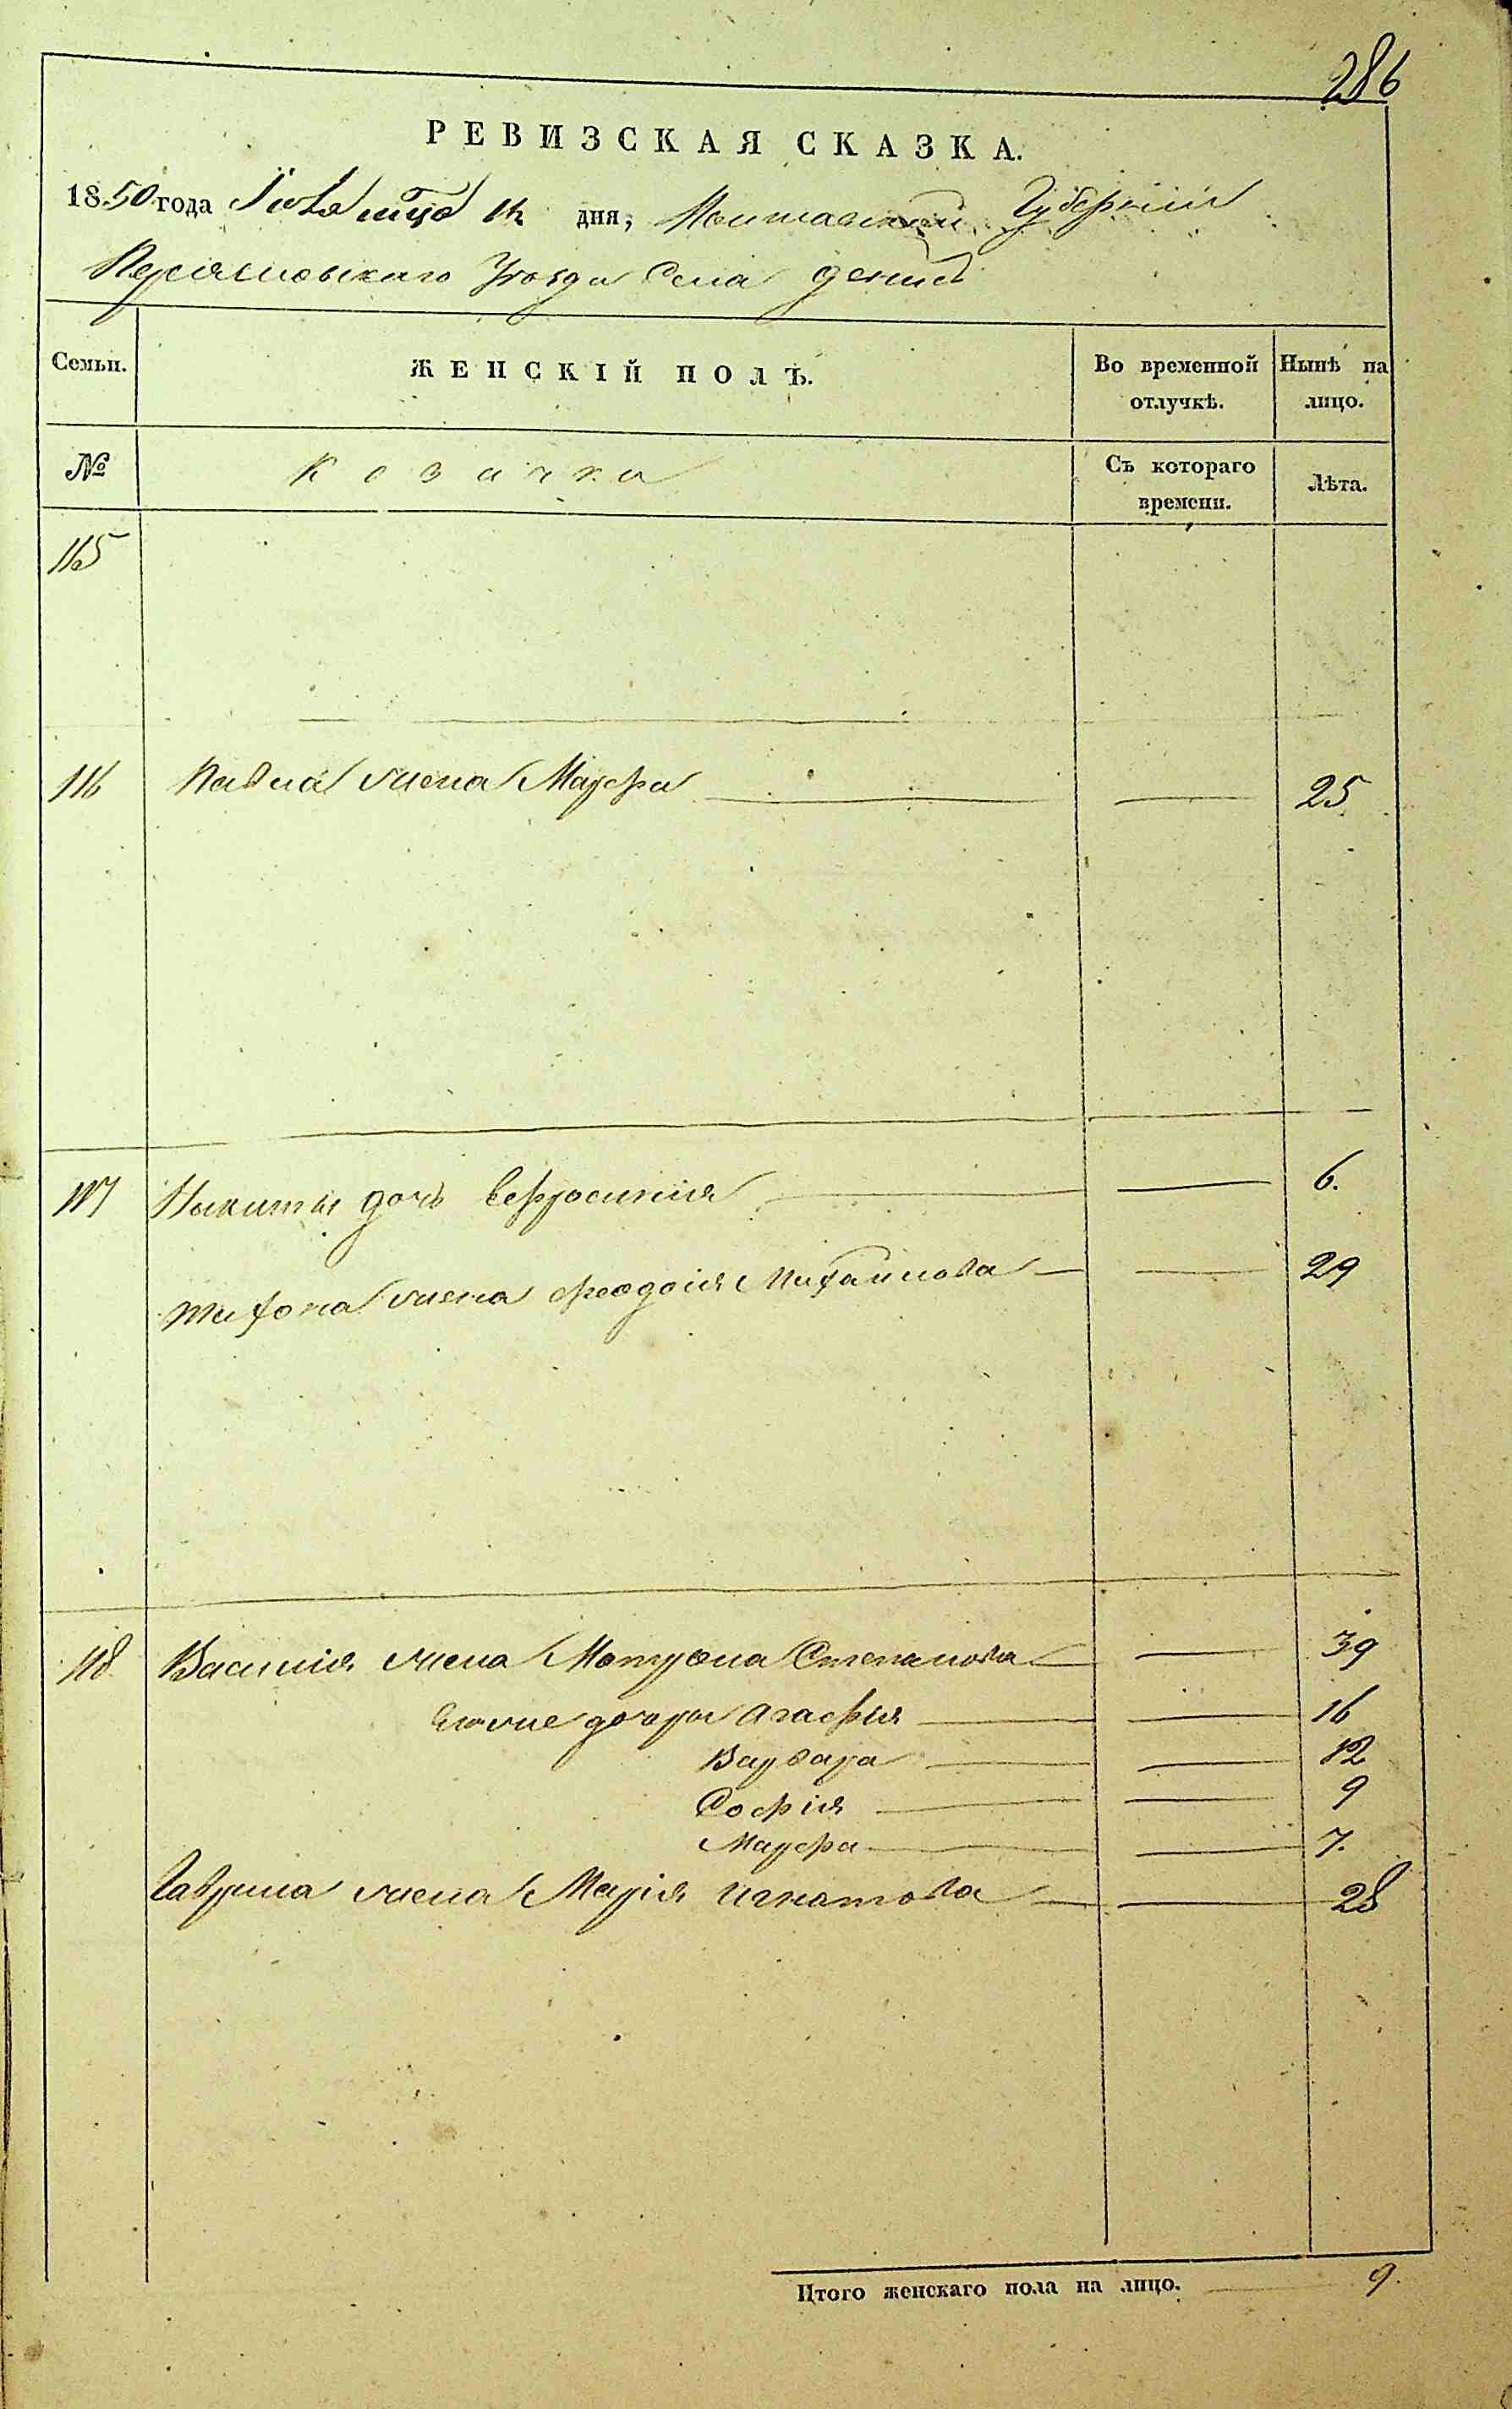 286
РЕВИЗСКАЯ СКАЗКА.
1850 года Іюля мца дня, Полтавской Губерніи
Переяславскаго Уезда Села
Семьи. ЖЕНСКІЙ ПОЛЪ. Во временной отлучкѣ. Нынѣ на лицо.
№ Козачки Съ котораго времени. Лѣта.
115
116 Павла жена Марфа 25
117 Никиты дочь Ефросинія 6.
Тихона жена Феодосія Михайлова 29
118 Василія жена Мотрона Степанова 39
дочери Агафія 16
Варвара 12
Софія 9
Марфа 7.
Гаврила жена Марія Игнатова 28
Итого женскаго пола на лицо. 9.